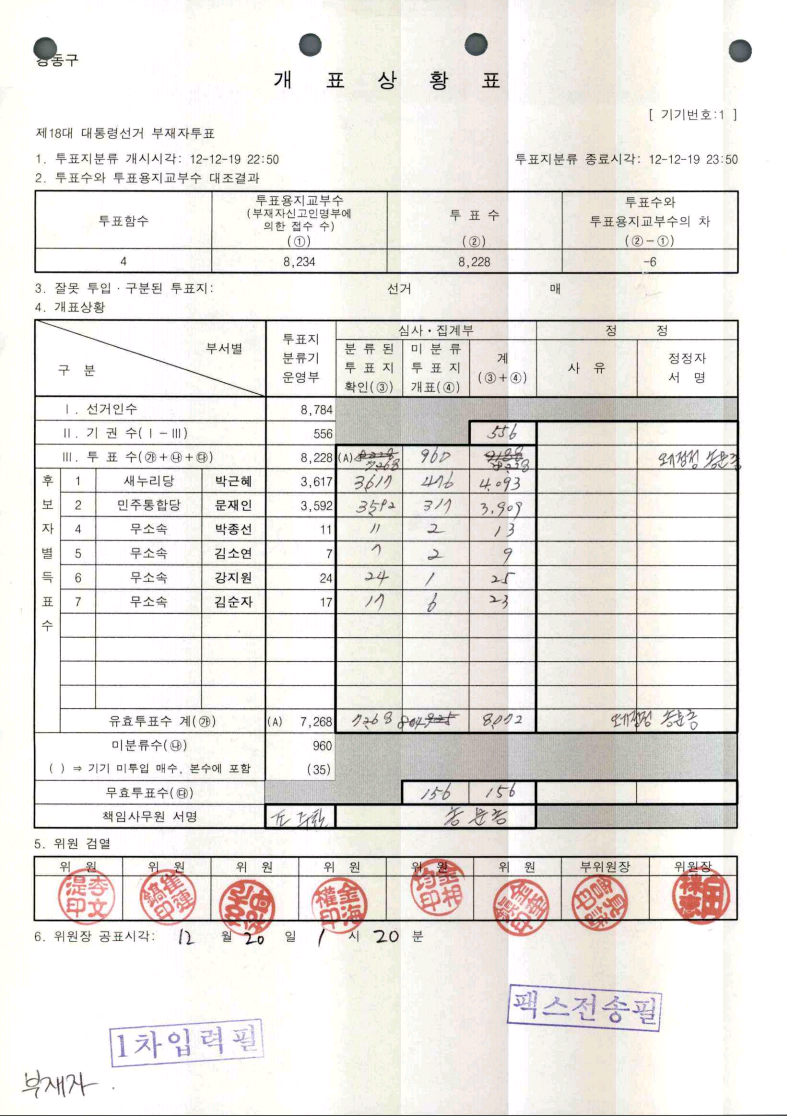 강동구
개 표 상 황 표
[ 기기번호:1 ]
제18대 대통령선거 부재자투표
1. 투표지분류 개시시각: 12-12-19 22:50 투표지분류 종료시각: 12-12-19 23:50
2. 투표수와 투표용지교부수 대조결과
투표함수 투표용지교부수 (부재자신고인명부에 의한 접수 수) (①) 투 표 수 (②) 투표수와 투표용지교부수의 차 (②-①)
4 8,234 8,228 -6
3. 잘못 투입·구분된 투표지: 선거 매
4. 개표상황
구 분 부서별 투표지 분류기 운영부 심사·집계부 정 정
분 류 된 투 표 지 확인(③) 미 분 류 투 표 지 개표(④) 계 (③+④) 사 유 정정자 서 명
Ⅰ. 선거인수 8,784
Ⅱ. 기 권 수(Ⅰ-Ⅲ) 556 556
Ⅲ. 투 표 수(㉮+㉯+㉰) 8,228 (A) 7,268 960 8,228
후보자별득표수
1 새누리당 박근혜 3,617 3617 476 4,093
2 민주통합당 문재인 3,592 3592 317 3,909
4 무소속 박종선 11 11 2 13
5 무소속 김소연 7 7 2 9
6 무소속 강지원 24 24 1 25
7 무소속 김순자 17 17 6 23
유효투표수 계(㉮) (A) 7,268 7268 804 8,072
미분류수(㉯) 960
( ) ⇒ 기기 미투입 매수, 본수에 포함 (35)
무효투표수(㉰) 156 156
책임사무원 서명
5. 위원 검열
위 원 위 원 위 원 위 원 위 원 위 원 부위원장 위원장
6. 위원장 공표시각: 12 월 20 일 1 시 20 분
팩스전송필
1차입력필
부재자